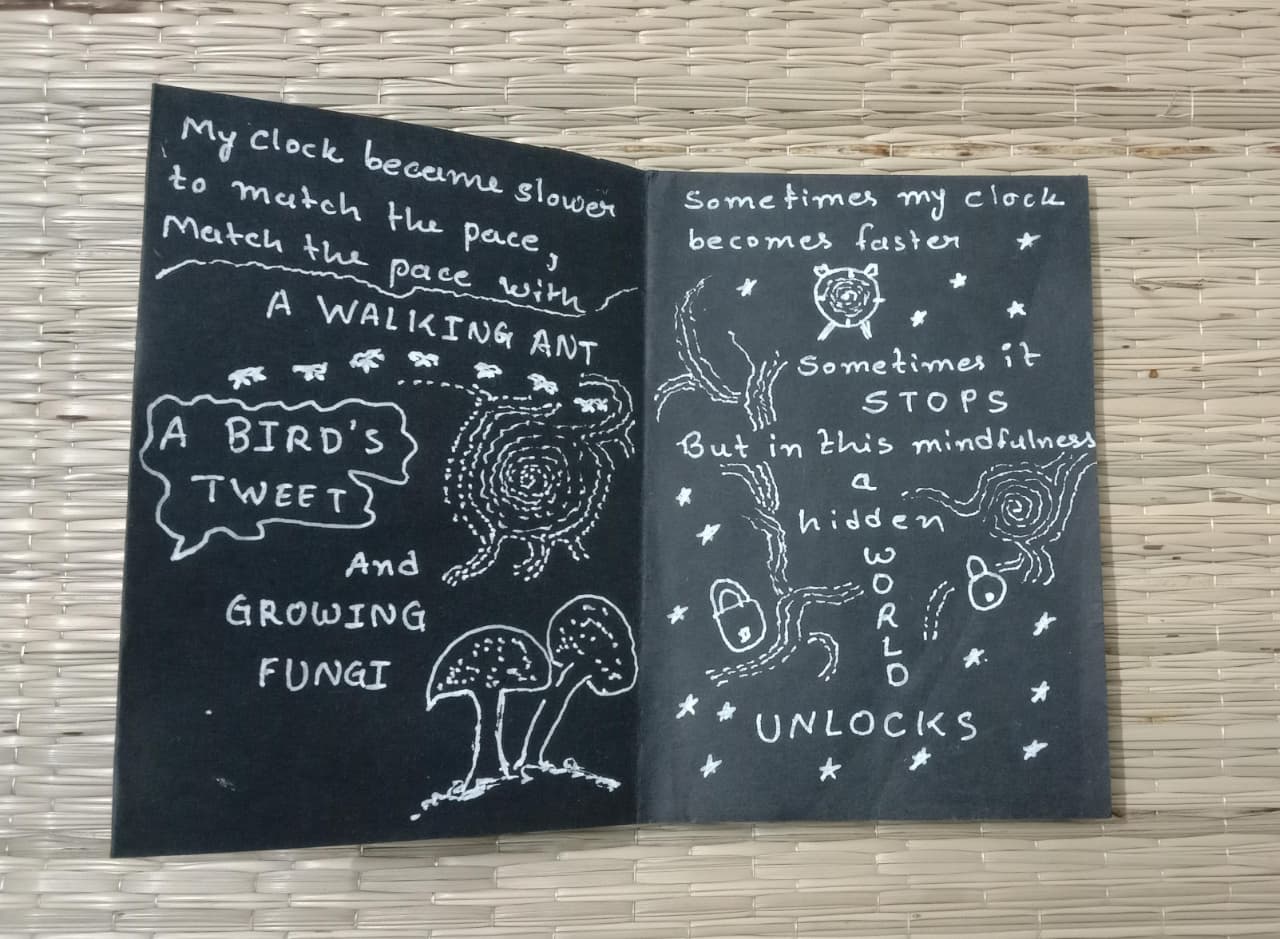 My clock became slower
to match the pace,
Match the pace with
A WALKING ANT
A BIRD'S
TWEET
And
GROWING
FUNGI
Sometimes my clock
becomes faster
Sometimes it
STOPS
But in this mindfulness
a
hidden
WORLD
UNLOCKS